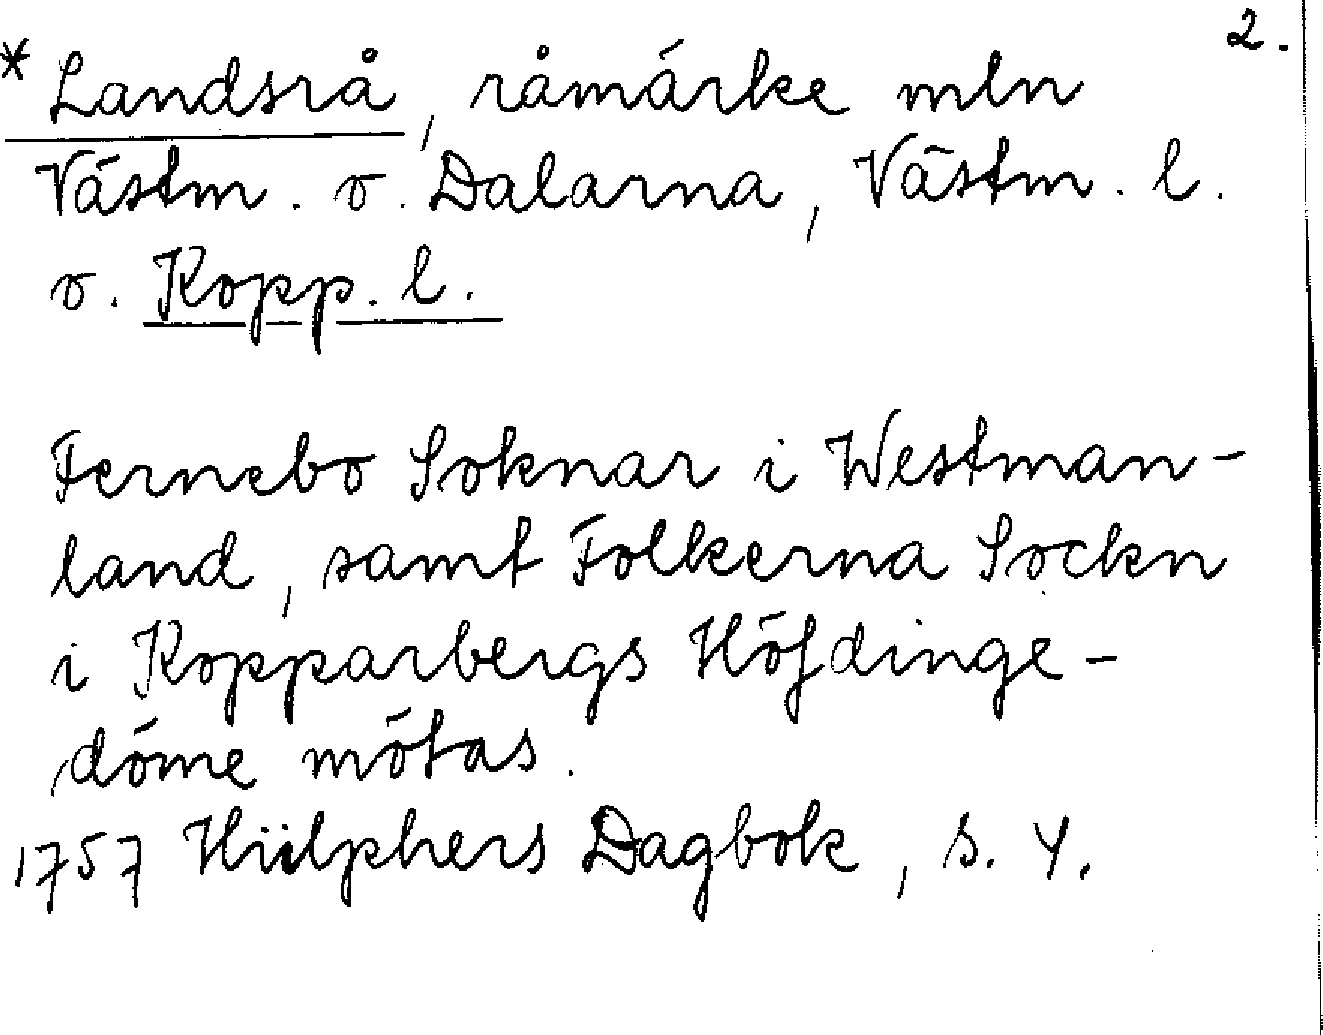 2.
* Landsrå, råmärke mln
Västm. o. Dalarna, Västm. l.
o. Kopp. l.
Fernebo Soknar i Westman-
land, samt Folkerna Sockn
i Kopparbergs Höfdinge-
döme mötas.
1757 Hülphers Dagbok, s. 4.